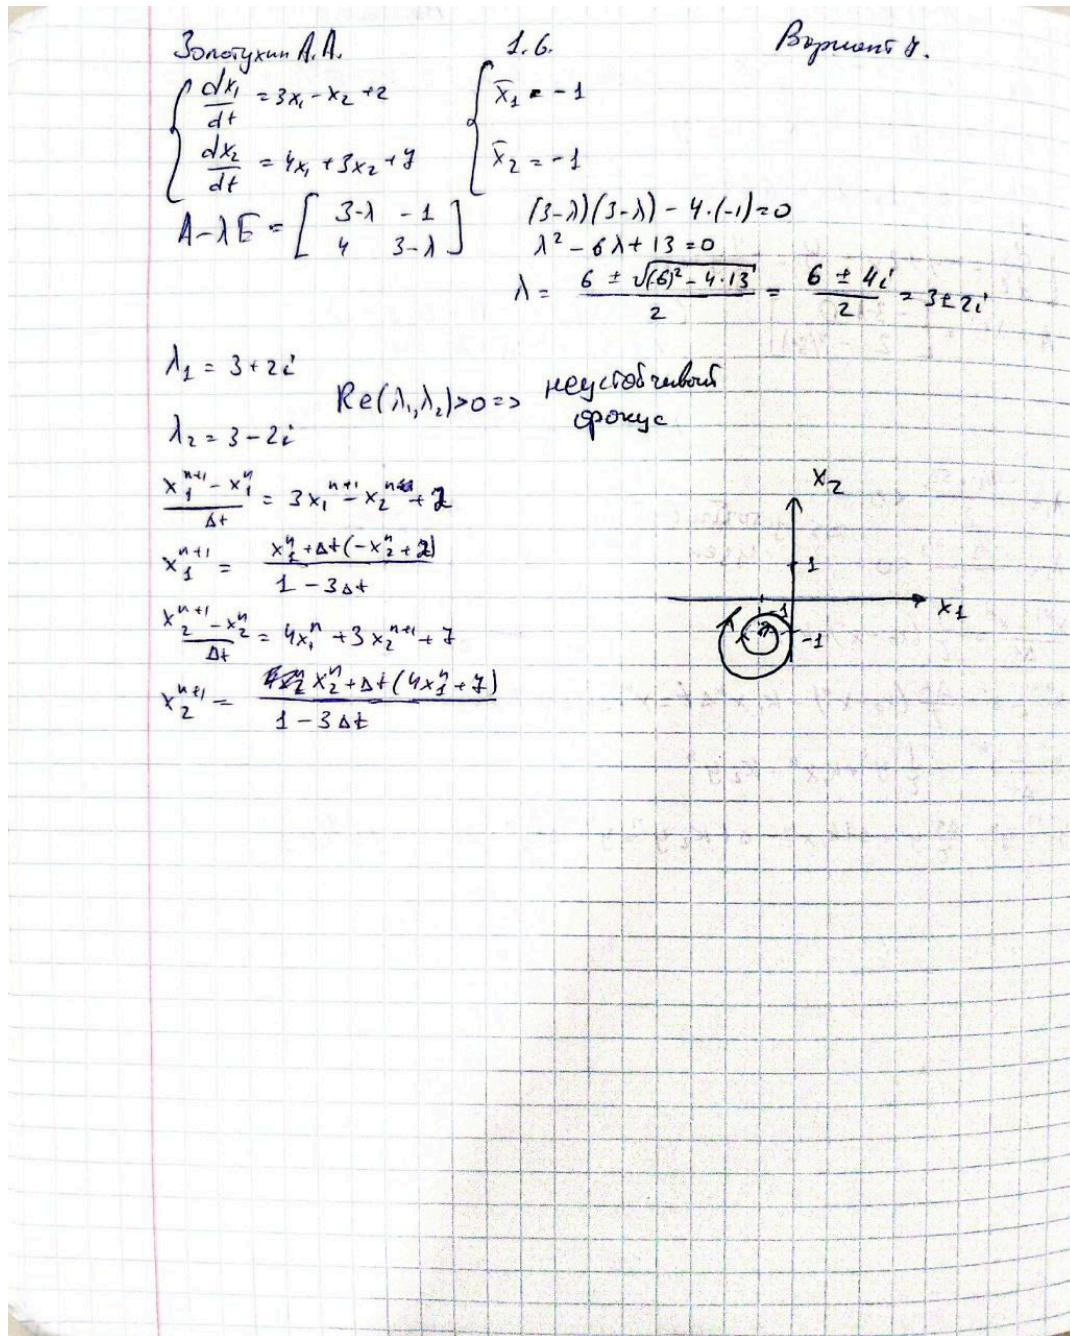 Золотухин А.А. 1.6. Вариант 7.
{ dx₁/dt = 3x₁ - x₂ + 2 { x̄₁ = -1
dx₂/dt = 4x₁ + 3x₂ + 7 x̄₂ = -1
A-λE = [ 3-λ -1 ] (3-λ)(3-λ) - 4·(-1) = 0
[ 4 3-λ ] λ² - 6λ + 13 = 0
λ = (6 ± √((-6)² - 4·13))/2 = (6 ± 4i)/2 = 3±2i
λ₁ = 3 + 2i
Re(λ₁,λ₂)>0 => неустойчивый
фокус
λ₂ = 3 - 2i
(x₁ⁿ⁺¹ - x₁ⁿ)/Δt = 3x₁ⁿ⁺¹ - x₂ⁿ + 2
x₁ⁿ⁺¹ = (x₁ⁿ + Δt(-x₂ⁿ + 2))/(1 - 3Δt)
(x₂ⁿ⁺¹ - x₂ⁿ)/Δt = 4x₁ⁿ + 3x₂ⁿ⁺¹ + 7
x₂ⁿ⁺¹ = (x₂ⁿ + Δt(4x₁ⁿ + 7))/(1 - 3Δt)
x₂
1
x₁
-1
-1